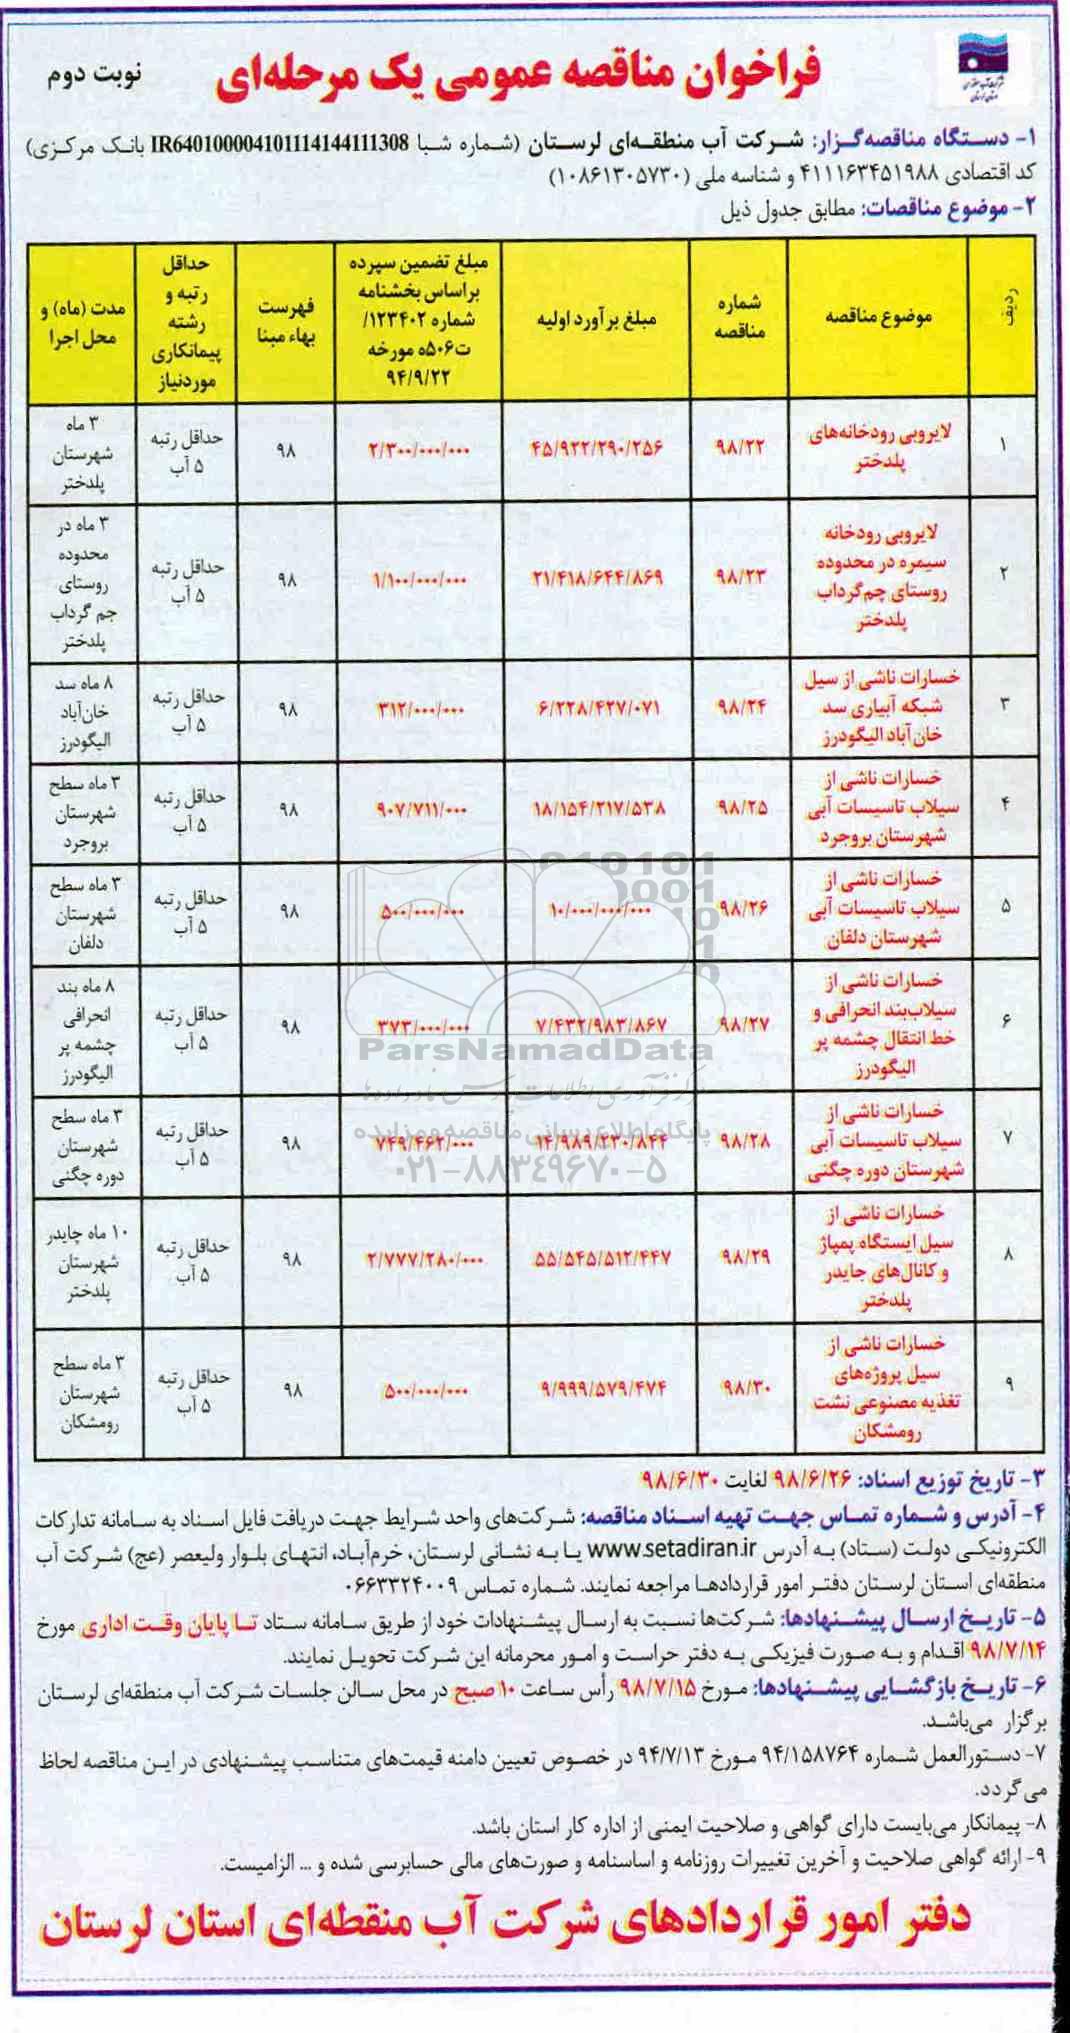 فراخوان مناقصه عمومی یک مرحله‌ای
نوبت دوم
۱- دستگاه مناقصه‌گزار: شرکت آب منطقه‌ای لرستان (شماره شبا IR640100004101114144111308 بانک مرکزی)
کد اقتصادی ۴۱۱۱۶۳۴۵۱۹۸۸ و شناسه ملی (۱۰۸۶۱۳۰۵۷۳۰)
۲- موضوع مناقصات: مطابق جدول ذیل
ردیف | موضوع مناقصه | شماره مناقصه | مبلغ برآورد اولیه | مبلغ تضمین سپرده براساس بخشنامه شماره ۱۲۳۴۰۲/ت۵۰۶ه مورخه ۹۴/۹/۲۲ | فهرست بهاء مبنا | حداقل رتبه و رشته پیمانکاری موردنیاز | مدت (ماه) و محل اجرا
۱ | لایروبی رودخانه‌های پلدختر | ۹۸/۲۲ | ۴۵/۹۲۲/۲۹۰/۲۵۶ | ۲/۳۰۰/۰۰۰/۰۰۰ | ۹۸ | حداقل رتبه ۵ آب | ۳ ماه شهرستان پلدختر
۲ | لایروبی رودخانه سیمره در محدوده روستای چم‌گرداب پلدختر | ۹۸/۲۳ | ۲۱/۴۱۸/۶۴۴/۸۶۹ | ۱/۱۰۰/۰۰۰/۰۰۰ | ۹۸ | حداقل رتبه ۵ آب | ۳ ماه در محدوده روستای جم گرداب پلدختر
۳ | خسارات ناشی از سیل شبکه آبیاری سد خان‌آباد الیگودرز | ۹۸/۲۴ | ۶/۲۲۸/۴۲۷/۰۷۱ | ۳۱۲/۰۰۰/۰۰۰ | ۹۸ | حداقل رتبه ۵ آب | ۸ ماه سد خان‌آباد الیگودرز
۴ | خسارات ناشی از سیلاب تاسیسات آبی شهرستان بروجرد | ۹۸/۲۵ | ۱۸/۱۵۴/۲۱۷/۵۳۸ | ۹۰۷/۷۱۱/۰۰۰ | ۹۸ | حداقل رتبه ۵ آب | ۳ ماه سطح شهرستان بروجرد
۵ | خسارات ناشی از سیلاب تاسیسات آبی شهرستان دلفان | ۹۸/۲۶ | ۱۰/۰۰۰/۰۰۰/۰۰۰ | ۵۰۰/۰۰۰/۰۰۰ | ۹۸ | حداقل رتبه ۵ آب | ۳ ماه سطح شهرستان دلفان
۶ | خسارات ناشی از سیلاب‌بند انحرافی و خط انتقال چشمه پر الیگودرز | ۹۸/۲۷ | ۷/۴۳۲/۹۸۳/۸۶۷ | ۳۷۳/۰۰۰/۰۰۰ | ۹۸ | حداقل رتبه ۵ آب | ۸ ماه بند انحرافی چشمه پر الیگودرز
۷ | خسارات ناشی از سیلاب تاسیسات آبی شهرستان دوره چگنی | ۹۸/۲۸ | ۱۴/۹۸۹/۲۳۰/۸۴۴ | ۷۴۹/۴۶۲/۰۰۰ | ۹۸ | حداقل رتبه ۵ آب | ۳ ماه سطح شهرستان دوره چگنی
۸ | خسارات ناشی از سیل ایستگاه پمپاژ و کانال‌های جایدر پلدختر | ۹۸/۲۹ | ۵۵/۵۴۵/۵۱۲/۴۴۷ | ۲/۷۷۷/۲۸۰/۰۰۰ | ۹۸ | حداقل رتبه ۵ آب | ۱۰ ماه چایدر شهرستان پلدختر
۹ | خسارات ناشی از سیل پروژه‌های تغذیه مصنوعی نشت رومشکان | ۹۸/۳۰ | ۹/۹۹۹/۵۷۹/۴۷۴ | ۵۰۰/۰۰۰/۰۰۰ | ۹۸ | حداقل رتبه ۵ آب | ۳ ماه سطح شهرستان رومشکان
ParsNamadData
پایگاه اطلاع رسانی مناقصه و مزایده
۰۲۱-۸۸۳۴۹۶۷۰-۵
۳- تاریخ توزیع اسناد: ۹۸/۶/۲۶ لغایت ۹۸/۶/۳۰
۴- آدرس و شماره تماس جهت تهیه اسناد مناقصه: شرکت‌های واحد شرایط جهت دریافت فایل اسناد به سامانه تدارکات
الکترونیکی دولت (ستاد) به آدرس www.setadiran.ir یا به نشانی لرستان، خرم‌آباد، انتهای بلوار ولیعصر (عج) شرکت آب
منطقه‌ای استان لرستان دفتر امور قراردادها مراجعه نمایند. شماره تماس ۰۶۶۳۳۲۴۰۰۹
۵- تاریخ ارسال پیشنهادها: شرکت‌ها نسبت به ارسال پیشنهادات خود از طریق سامانه ستاد تا پایان وقت اداری مورخ
۹۸/۷/۱۴ اقدام و به صورت فیزیکی به دفتر حراست و امور محرمانه این شرکت تحویل نمایند.
۶- تاریخ بازگشایی پیشنهادها: مورخ ۹۸/۷/۱۵ رأس ساعت ۱۰ صبح در محل سالن جلسات شرکت آب منطقه‌ای لرستان
برگزار می‌باشد.
۷- دستورالعمل شماره ۹۴/۱۵۸۷۶۴ مورخ ۹۴/۷/۱۳ در خصوص تعیین دامنه قیمت‌های متناسب پیشنهادی در این مناقصه لحاظ
می‌گردد.
۸- پیمانکار می‌بایست دارای گواهی و صلاحیت ایمنی از اداره کار استان باشد.
۹- ارائه گواهی صلاحیت و آخرین تغییرات روزنامه و اساسنامه و صورت‌های مالی حسابرسی شده و ... الزامیست.
دفتر امور قراردادهای شرکت آب منقطه‌ای استان لرستان